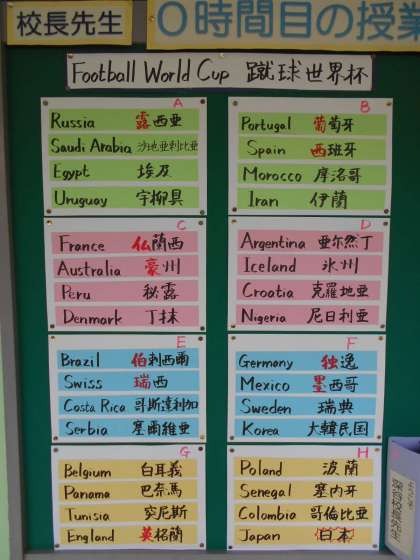 校長先生
０時間目の授業
Football World Cup 蹴球世界杯
A
Russia 露西亜
Saudi Arabia 沙地亜剌比亜
Egypt 埃及
Uruguay 宇柳具
B
Portugal 葡萄牙
Spain 西班牙
Morocco 摩洛哥
Iran 伊蘭
C
France 仏蘭西
Australia 豪州
Peru 秘露
Denmark 丁抹
D
Argentina 亜尔然丁
Iceland 氷州
Croatia 克羅地亜
Nigeria 尼日利亜
E
Brazil 伯剌西爾
Swiss 瑞西
Costa Rica 哥斯達利加
Serbia 塞爾維亜
F
Germany 独逸
Mexico 墨西哥
Sweden 瑞典
Korea 大韓民国
G
Belgium 白耳義
Panama 巴奈馬
Tunisia 突尼斯
England 英格蘭
H
Poland 波蘭
Senegal 塞内哥
Colombia 哥倫比亜
Japan 日本